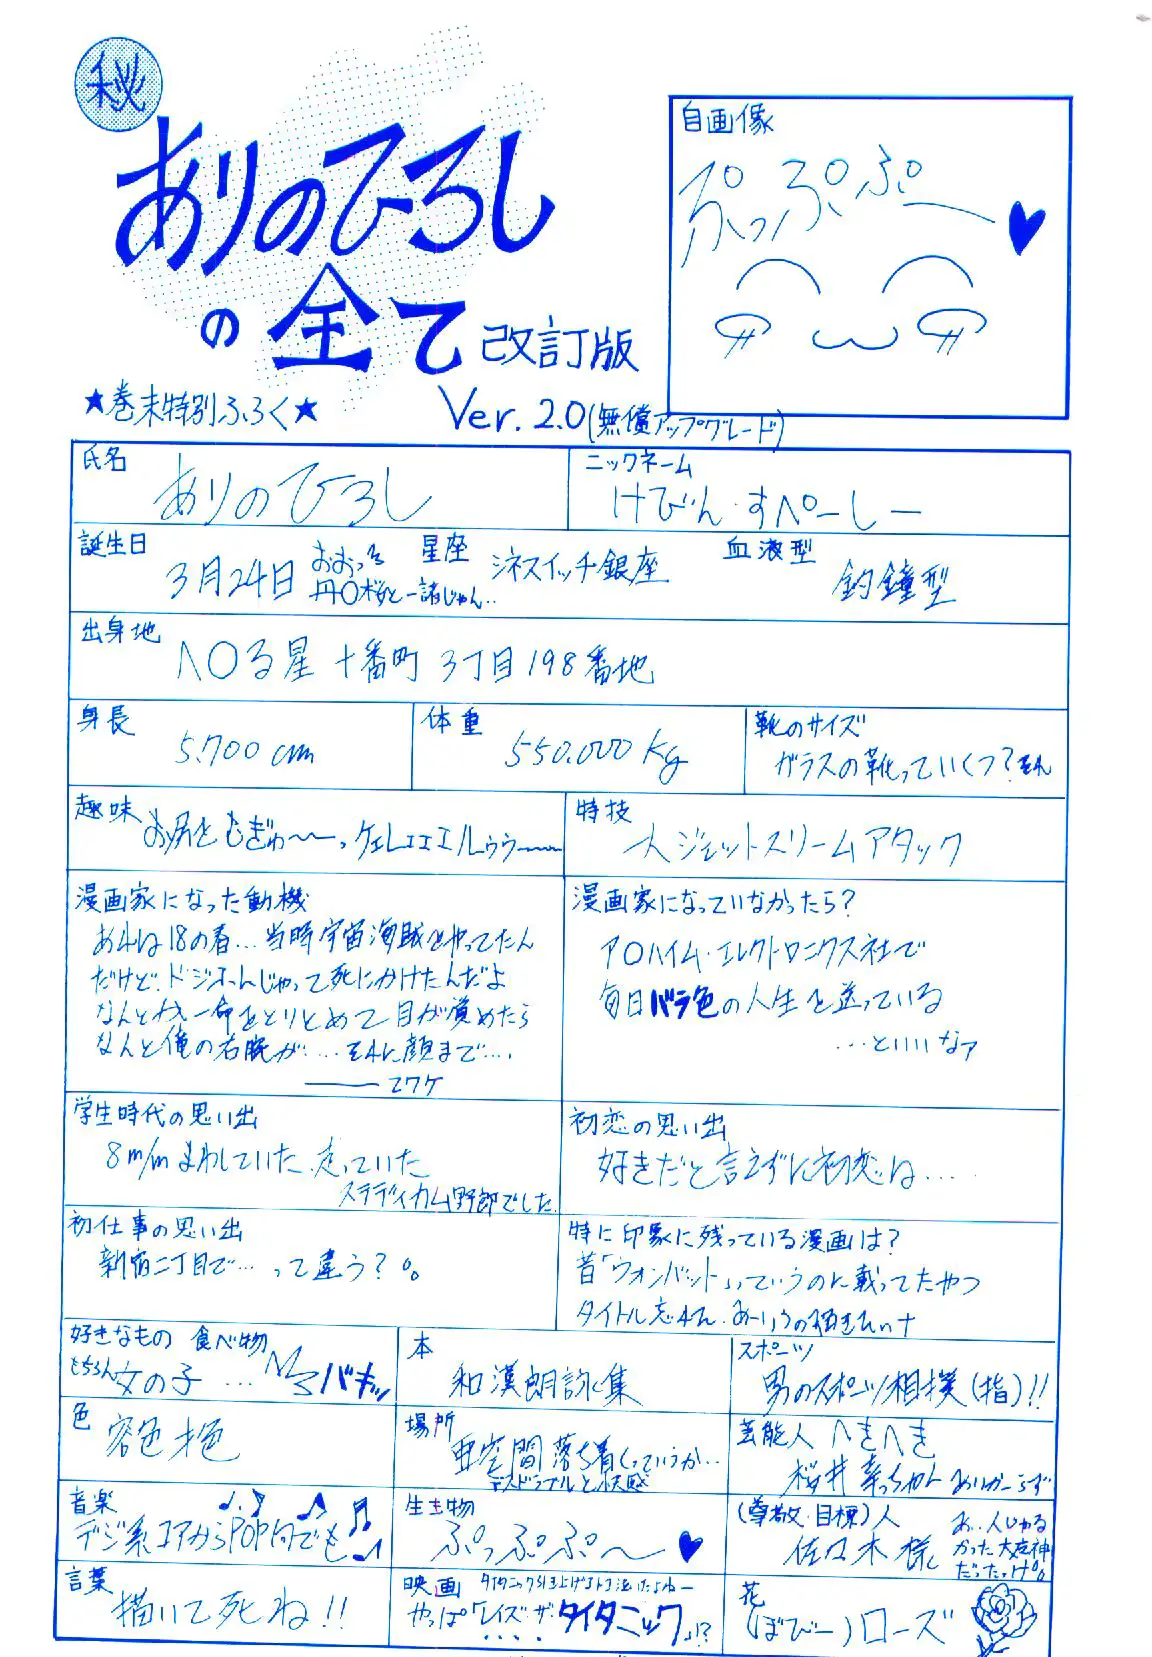 秘
ありのひろし
の全て 改訂版
★巻末特別ふろく★
Ver. 2.0(無償アップグレード)
自画像
ぷっぷぷぷー♥
氏名
ありのひろし
ニックネーム
けびん・すぺーしー
誕生日
3月24日
おおっる
丹〇桜と一諸じゃん..
星座
シネスイッチ銀座
血液型
釣鐘型
出身地
八〇る星 十番町 3丁目198番地
身長
5.700cm
体重
550.000kg
靴のサイズ
ガラスの靴っていくつ?それ
趣味
お尻を もぎゅ〜〜っ
特技
人ジェットストリームアタック
漫画家になった動機
あれは18の春…当時宇宙海賊をやってたん
だけど、ドジふんじゃって死にかけたんだよ
なんとか一命をとりとめて目が覚めたら
なんと俺の右腕が……それに顔まで….
漫画家になっていなかったら?
ア〇ハイム・エレクトロニクス社で
毎日バラ色の人生を送っている
…といいなァ
学生時代の思い出
8m/mまわしていた、走っていた
ステディカム野郎でした
初恋の思い出
好きだと言えずに初恋は….
初仕事の思い出
新宿二丁目で…って違う?。。
特に印象に残っている漫画は?
昔「ウォンバット」っていうのに載ってたやつ
タイトル忘れた
好きなもの 食べ物
もちろん女の子 … バキッ
本
和漢朗詠集
スポーツ
男のスポーツ相撲(指)!!
色
容色才色
場所
亜空間 落ち着くっていうか…
芸能人 へきへき
桜井幸っちゃん
音楽
デジ系コアからPOP何でも
生き物
ぷっぷぷぷ〜 ♥
(尊敬・目標)人
佐々木様
あ…人じゃな
かった大魔神
だったっけ。。
言葉
描いて死ね!!
映画
やっぱ「レイズ・ザ・タイタニック」!?
花
(ぼびー)ローズ